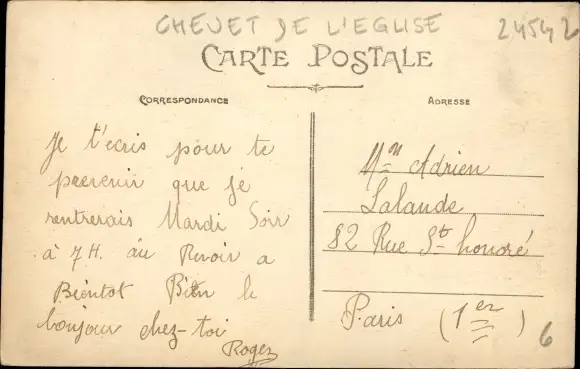 CHEVET DE L'EGLISE
24542
CARTE POSTALE
CORRESPONDANCE
ADRESSE
Je t'écris pour te
prevenir que je
rentrerais Mardi Soir
à 7 H. au Revoir a
Bientot Bien le
bonjour chez-toi
Roger
Mon Adrien
Lalande
82 Rue St honoré
Paris (1er)
6